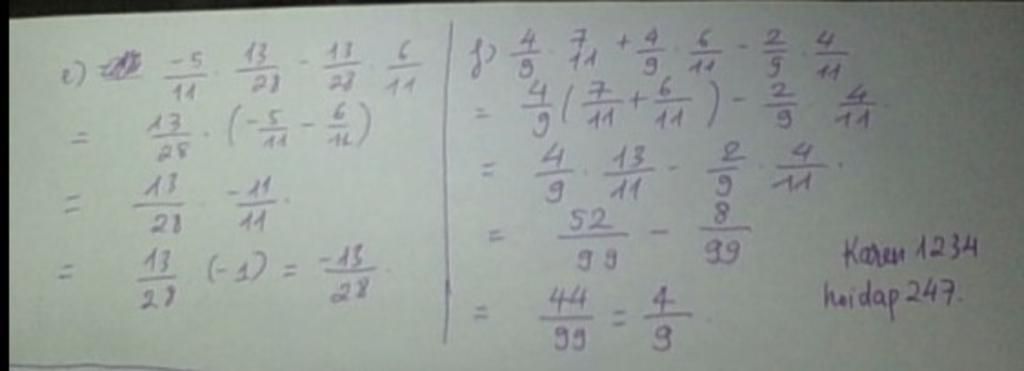 e) -5/11 · 13/28 - 13/28 · 6/11
= 13/28 · (-5/11 - 6/11)
= 13/28 · -11/11 .
= 13/28 (-1) = -13/28 .
f) 4/9 · 7/11 + 4/9 · 6/11 - 2/9 · 4/11
= 4/9 (7/11 + 6/11) - 2/9 4/11 .
= 4/9 · 13/11 - 2/9 · 4/11 .
= 52/99 - 8/99
= 44/99 = 4/9 .
Karen 1234
hoidap 247.